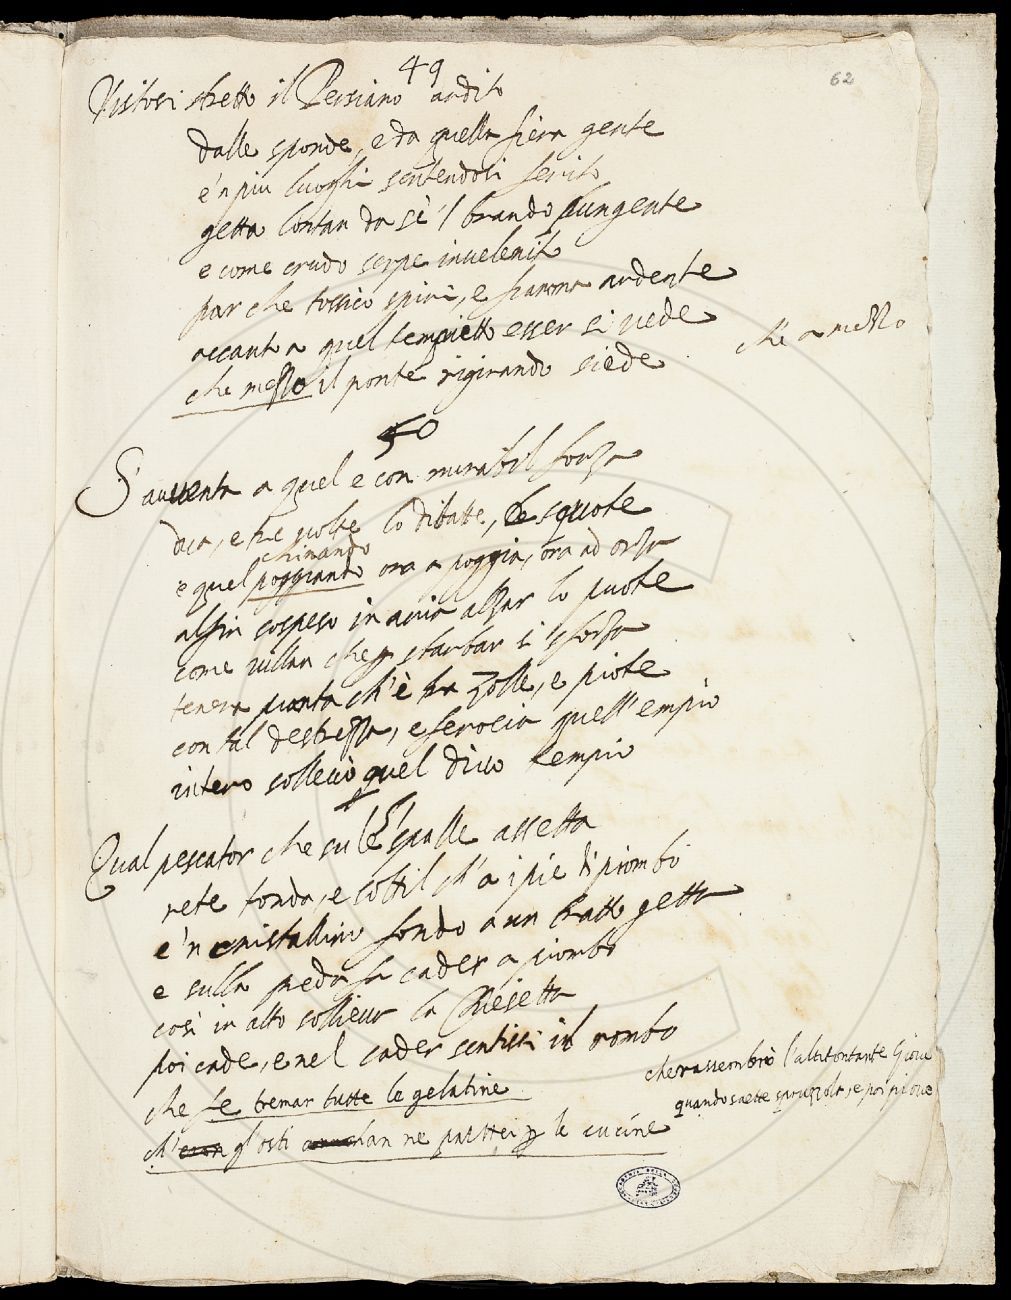 49
62
Vistosi stretto il Persiano ardito
dalle sponde, e da quella fiera gente
e 'n piu luoghi sentendosi ferito
getta lontan da sè 'l brando pungente
e come crudo serpe invelenito
par che tossico spiri, e fiamma ardente
accanto a quel tempietto esser si vede
che mezzo il ponte rigirando siede
ch' a mezzo
50
S'avventa a quel e con mirabil forza
dua, e tre volte lo dibatte, e squote
chinando
e quel poggiando ora a poggia, ora ad orza
alfin sospeso in aria alzar lo puote
come villan che sbarbar si sforza
tenera pianta ch'è tra zolle, e piote
con tal destrezza, e ferocia quell'empio
intero sollevò quel dico tempio
51
Qual pescator che su le spalle assetta
rete tonda, e sottil ch'a i piè di piombi
e 'n cristallino fondo a un tratto getta
e sulla preda fa cader a piombo
così in alto sollieva la Chiesetta
poi cade, e nel cader sentissi il rombo
che fe tremar tutte le gelatine
ch' gl'osti han ne piattei p le cucine
che rassembrò l'altitontante Giove
quando saette e poi piove